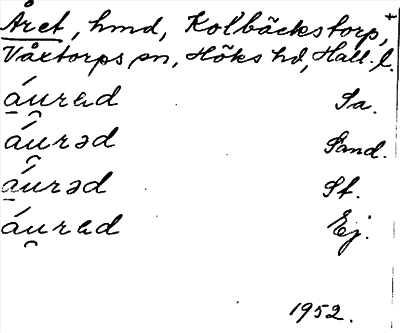 Året, hmd, Kolbäckstorp,+
Våxtorps sn, Höks hd, Hall. l.
á̱u̯rad Sa.
áu̯rəd Sand.
á̱urəd St.
áu̯rad Ej.
1952.